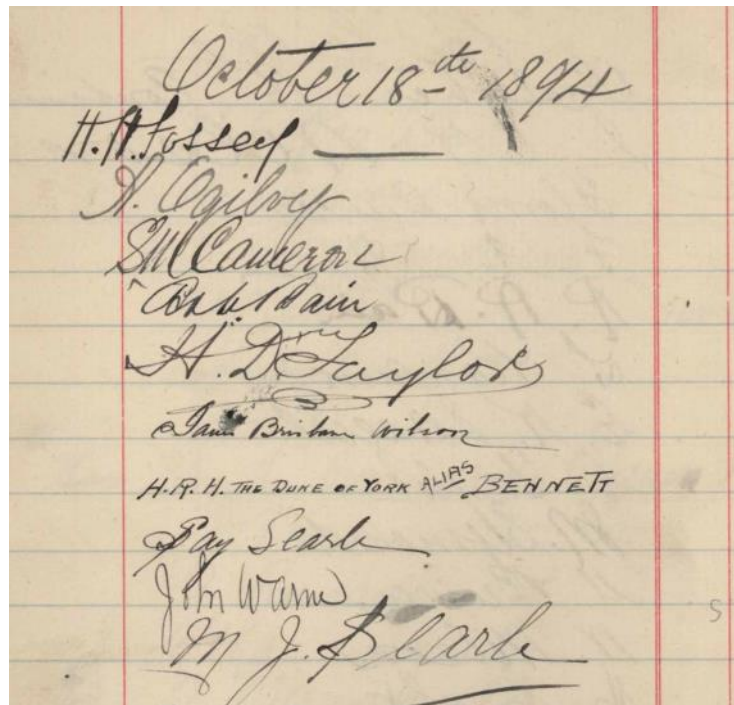 October 18th 1894
H. H. Fossey
A. Ogilvey
S M Cameron
"Bob" Bain
H. D. Taylor
James Brisbane Wilson
H.R.H. THE DUKE OF YORK ALIAS BENNETT
Searle
John Warne
M J. Searle
S